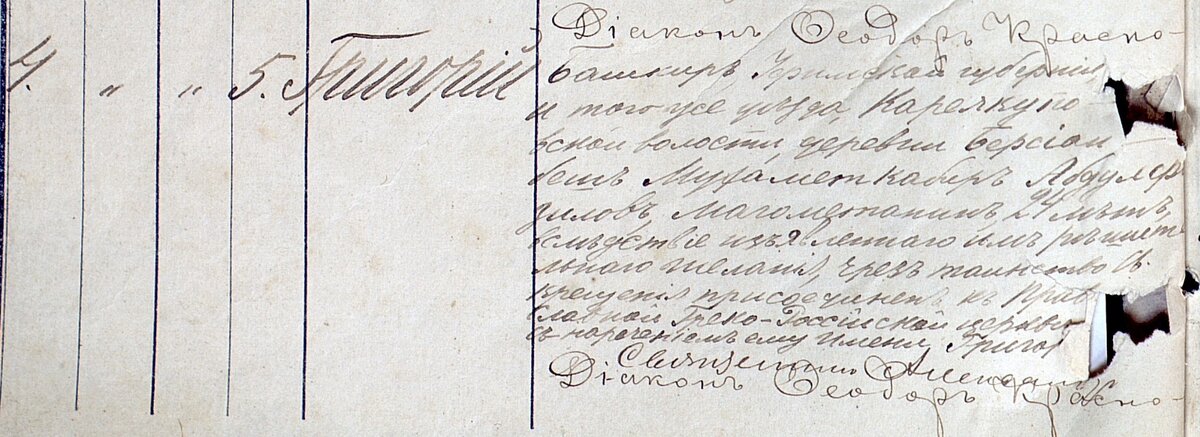 Діаконъ Ѳеодоръ Красно-
4. „ „ 5. Григорій
Башкиръ Уфимской губерніи
и того же уѣзда, Каръякупо-
вской волости, деревни Берсіан-
бешъ Мухаметкабиръ Абдулф
зиловъ, магометанинъ 24 лѣтъ,
вслѣдствіе изъявленнаго имъ рѣшите-
льнаго желанія, чрезъ таинство Св.
крещенія присоединенъ къ Прав
славной Греко-Россійской церкви
съ нареченіемъ ему имени Григор
Священникъ Александръ
Діаконъ Ѳеодоръ Красно-